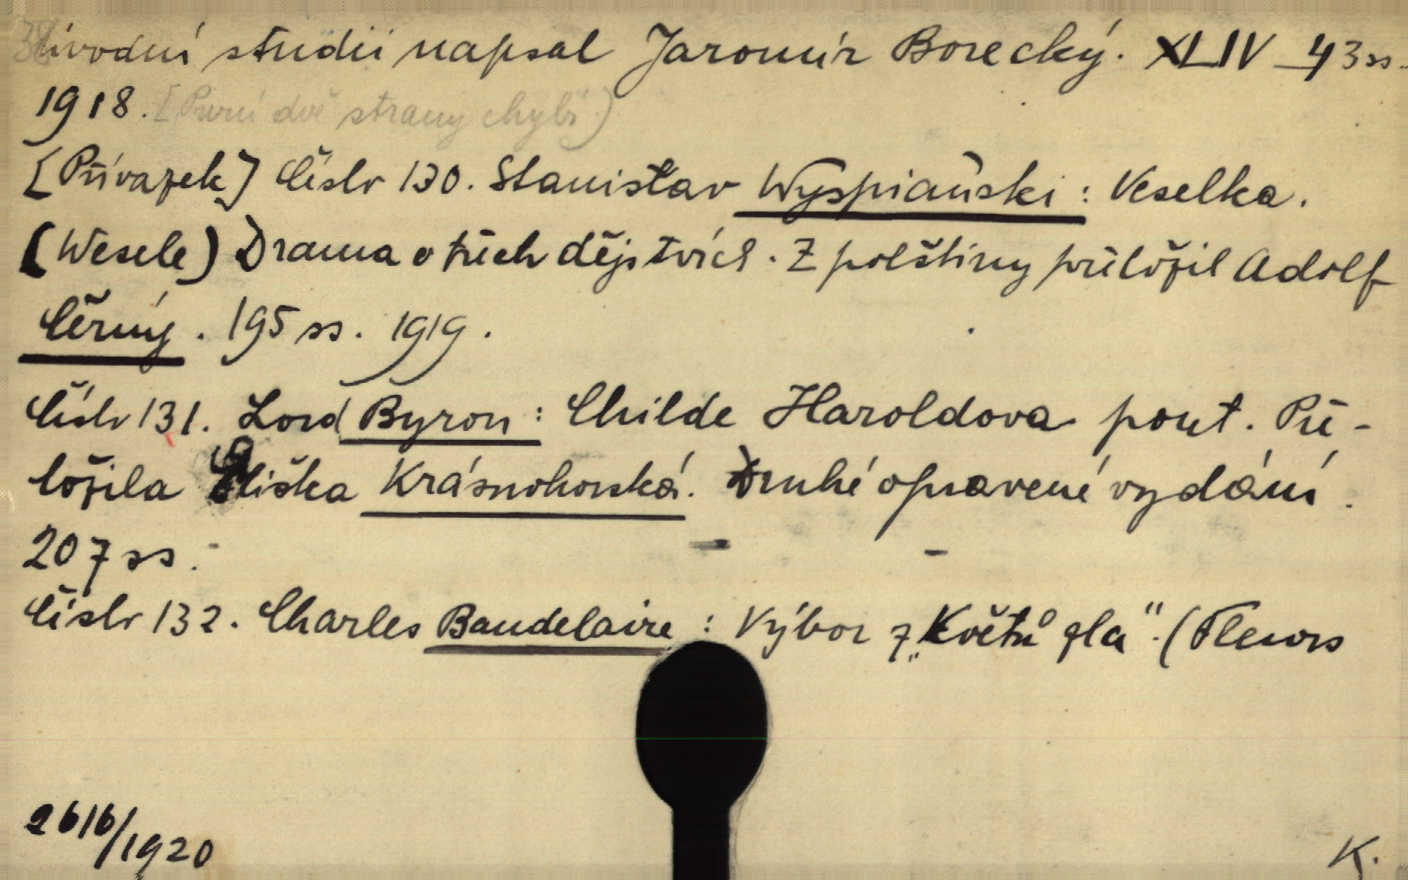 úvodní studii napsal Jaromír Borecký. XLIV 43 ss.
1918. [První dvě strany chybí)
[Přívazek] Číslo 130. Stanistav Wyspiański: Veselka.
(Wesele) Drama o třech dějstvích. Z polštiny přeložil Adolf
Černý. 195 ss. 1919.
Číslo 131. Lord Byron: Childe Haroldova pout. Pře-
ložila Eliška Krásnohorská. Druhé opravené vydání.
207 ss.
Číslo 132. Charles Baudelaire: Výbor z „Květů zla". (Fleurs
2616/1920
K.